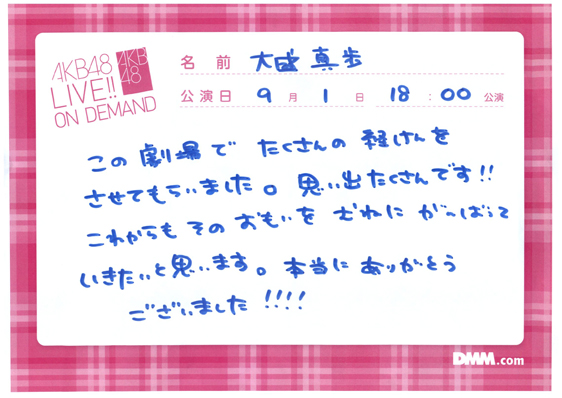 AKB48
LIVE!!
ON DEMAND
AKB
48
名 前 大盛 真歩
公演日 9 月 1 日 18 : 00 公演
この 劇場で たくさんの 経けんを
させてもらいました。思い出たくさんです!!
これからも その おもいを むねに が〜ばって
いきたいと思います。本当に ありがとう
ございました !!!!
DMM.com